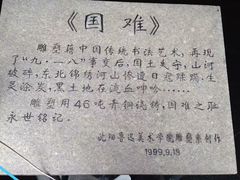 《国难》
雕塑籍中国传统书法艺术，再现
了“九·一八”事变后，国土失守，山河
破碎，东北锦绣河山惨遭日寇蹂躏，生
灵涂炭，黑土地在流血呻吟……
雕塑用46吨青铜浇铸，国难之耻
永世铭记。
沈阳鲁迅美术学院雕塑系创作
1999.9.18